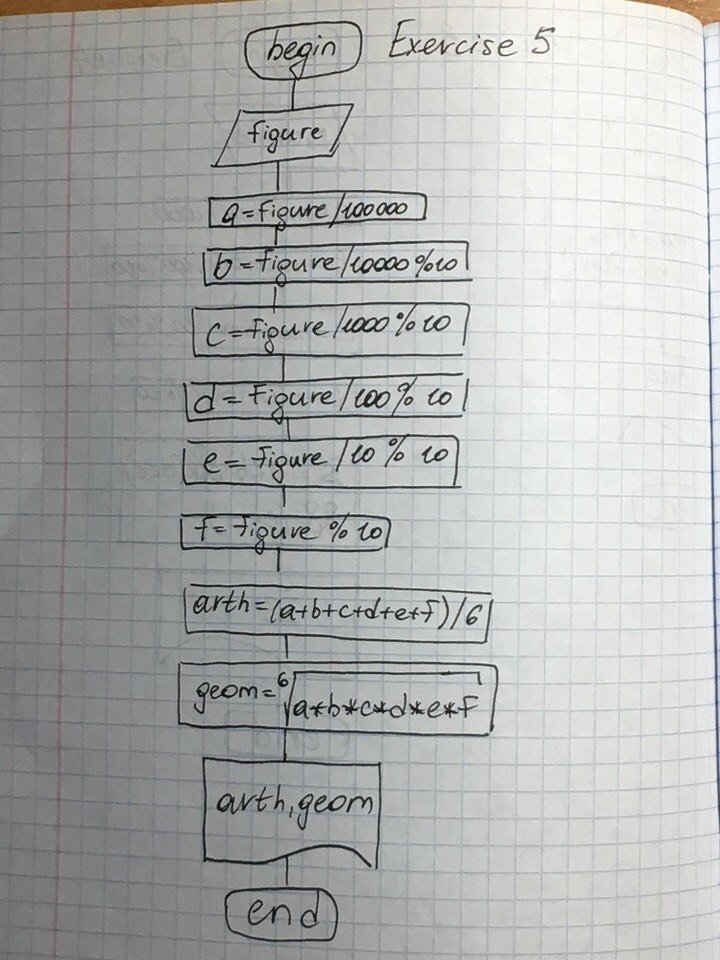 begin Exercise 5
figure
a=figure/100000
b=figure/10000%10
c=figure/1000%10
d=figure/100%10
e=figure/10%10
f=figure%10
arth=(a+b+c+d+e+f)/6
geom=⁶√a*b*c*d*e*f
arth,geom
end